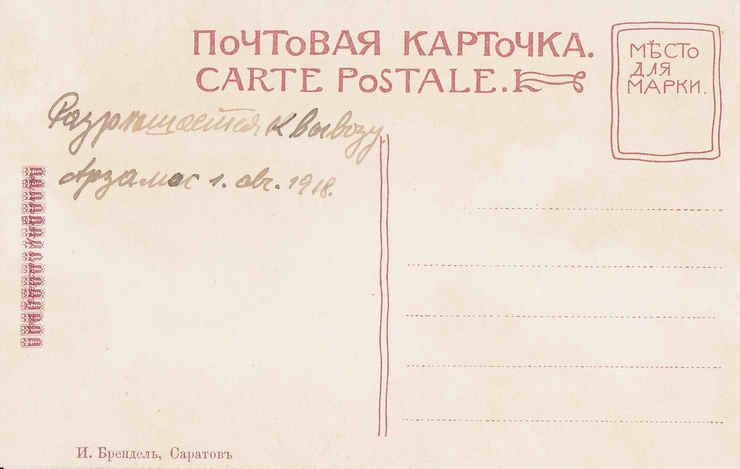 ПОЧТОВАЯ КАРТОЧКА.
CARTE POSTALE.
МѢСТО
ДЛЯ
МАРКИ.
Разрѣшается к вывозу
Арзамас 1. авг. 1918.
И. Брендель, Саратовъ